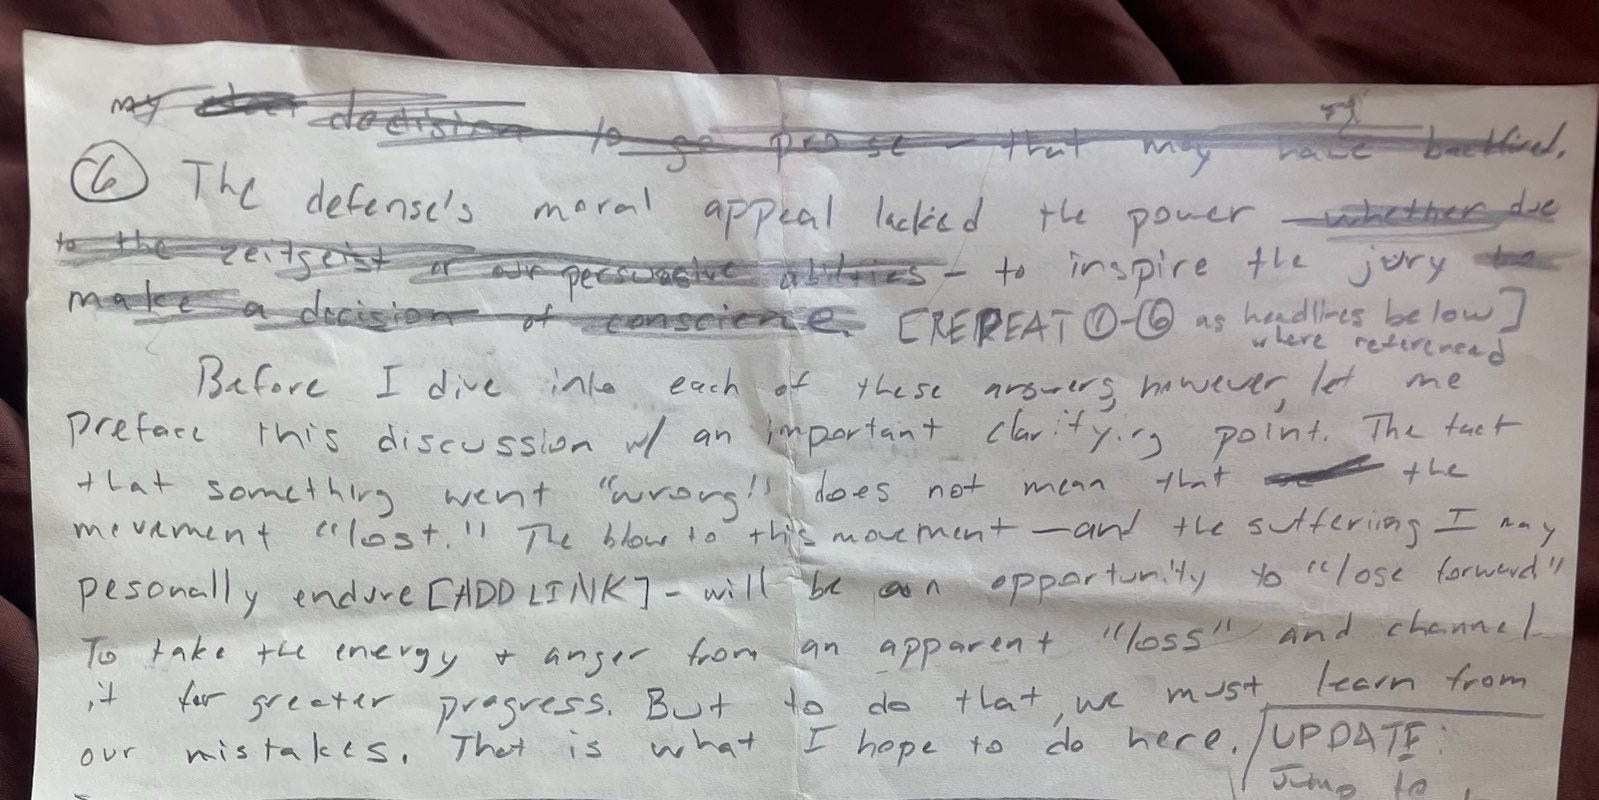 my decision to go pro se - that may have backfired.
⑥ The defense's moral appeal lacked the power - whether due
to the zeitgeist or our persuasive abilities - to inspire the jury to
make a decision of conscience. [REPEAT ①-⑥ as headlines below]
where referenced
Before I dive into each of these answers, however, let me
preface this discussion w/ an important clarifying point. The fact
that something went "wrong" does not mean that the
movement "lost." The blow to this movement - and the suffering I may
pesonally endure [ADD LINK] - will be an opportunity to "lose forward"
To take the energy + anger from an apparent "loss" and channel
it for greater progress. But to do that, we must learn from
our mistakes. That is what I hope to do here. UPDATE:
Jump to